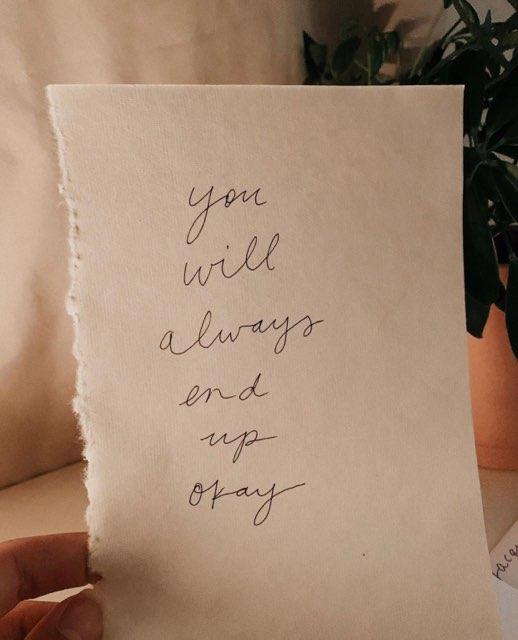 you
will
always
end
up
okay